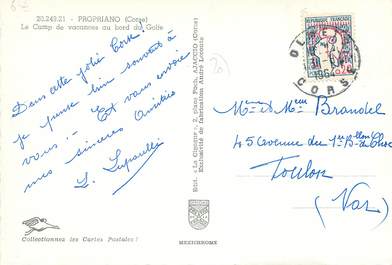 20.249.21 - PROPRIANO (Corse)
Le Camp de vacances au bord du Golfe
Dans cette jolie Corse
je pense bien souvent à
vous! - Et vous envoie
mes sincères Amitiés
Edit. "La Cigogne", 2, place Foch, AJACCIO (Corse)
Exclusivité de fabrication André Leconte
REPUBLIQUE FRANCAISE
1964
CORSE
Mme et Mlle Brandel
45 avenue du 1er Bllon du Choc
Toulon
(Var)
Collectionnez les Cartes Postales!
MEXICHROME